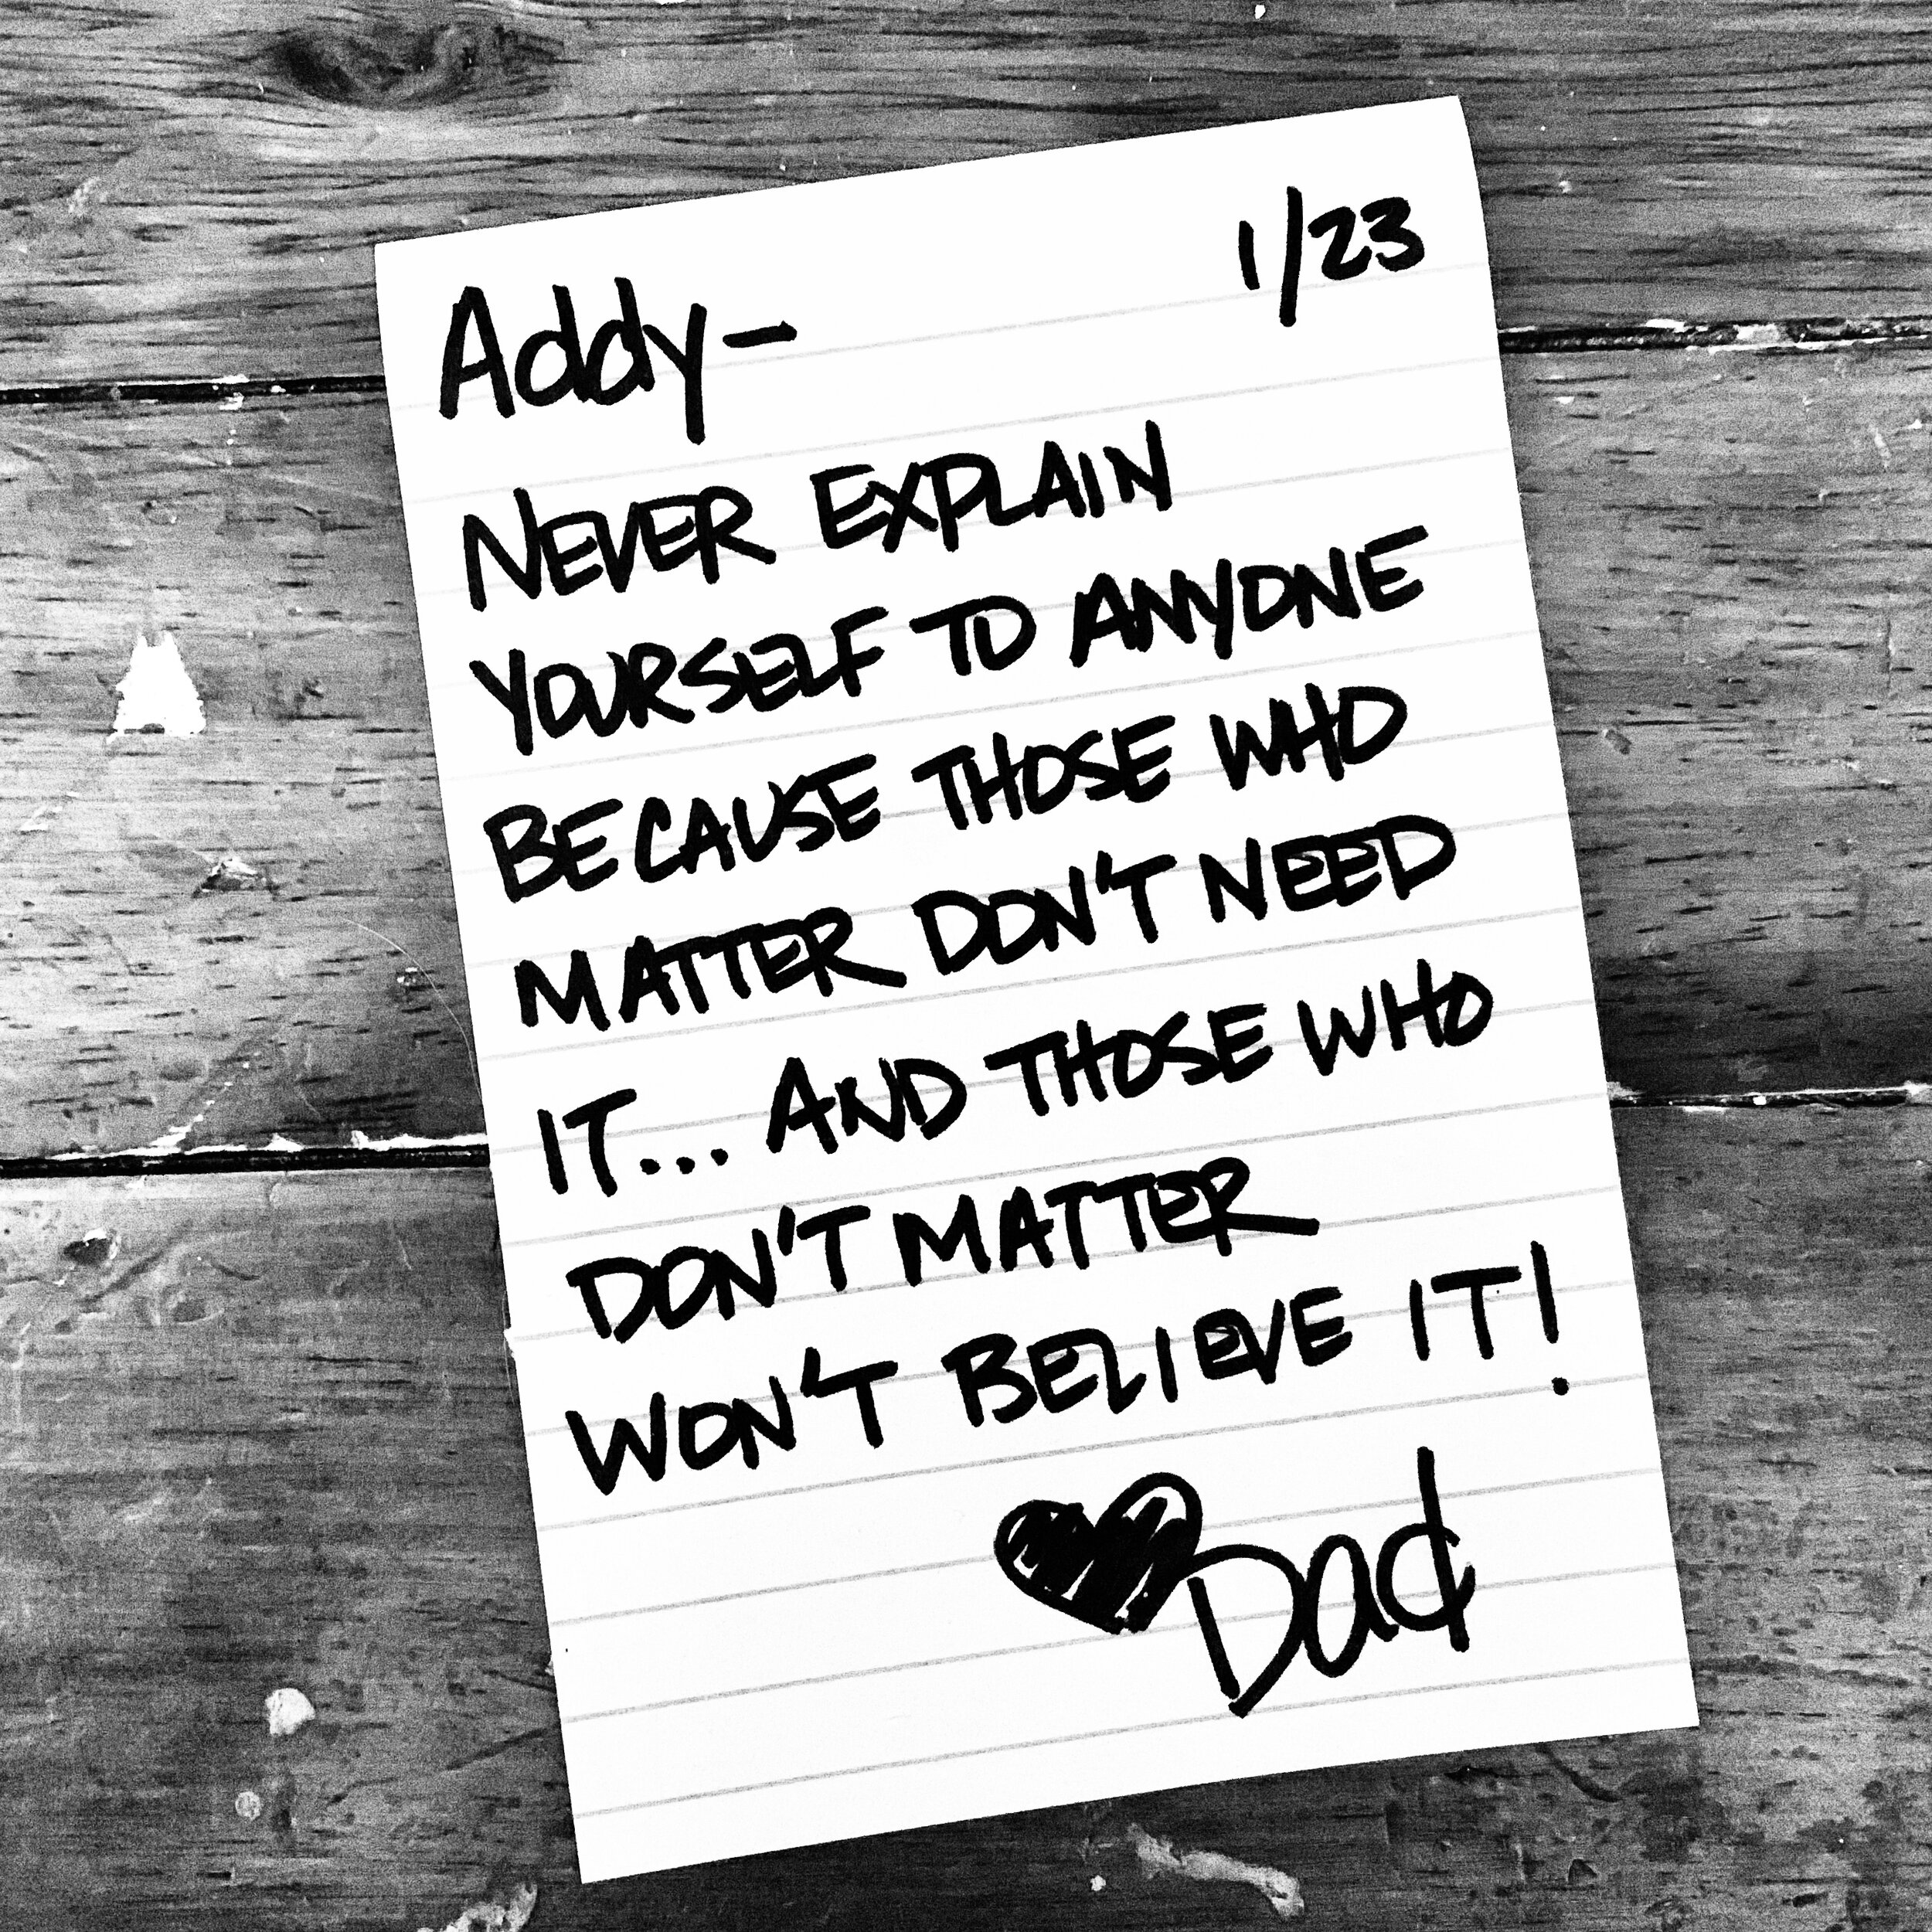 1/23
Addy-
NEVER EXPLAIN
YOURSELF TO ANYONE
BECAUSE THOSE WHO
MATTER DON'T NEED
IT... AND THOSE WHO
DON'T MATTER
WON'T BELIEVE IT!
Dad